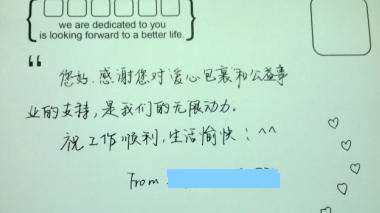 we are dedicated to you
is looking forward to a better life.
“
您好,感谢您对爱心包裹和公益事
业的支持,是我们的无限动力。
祝工作顺利,生活愉快!^^
From :